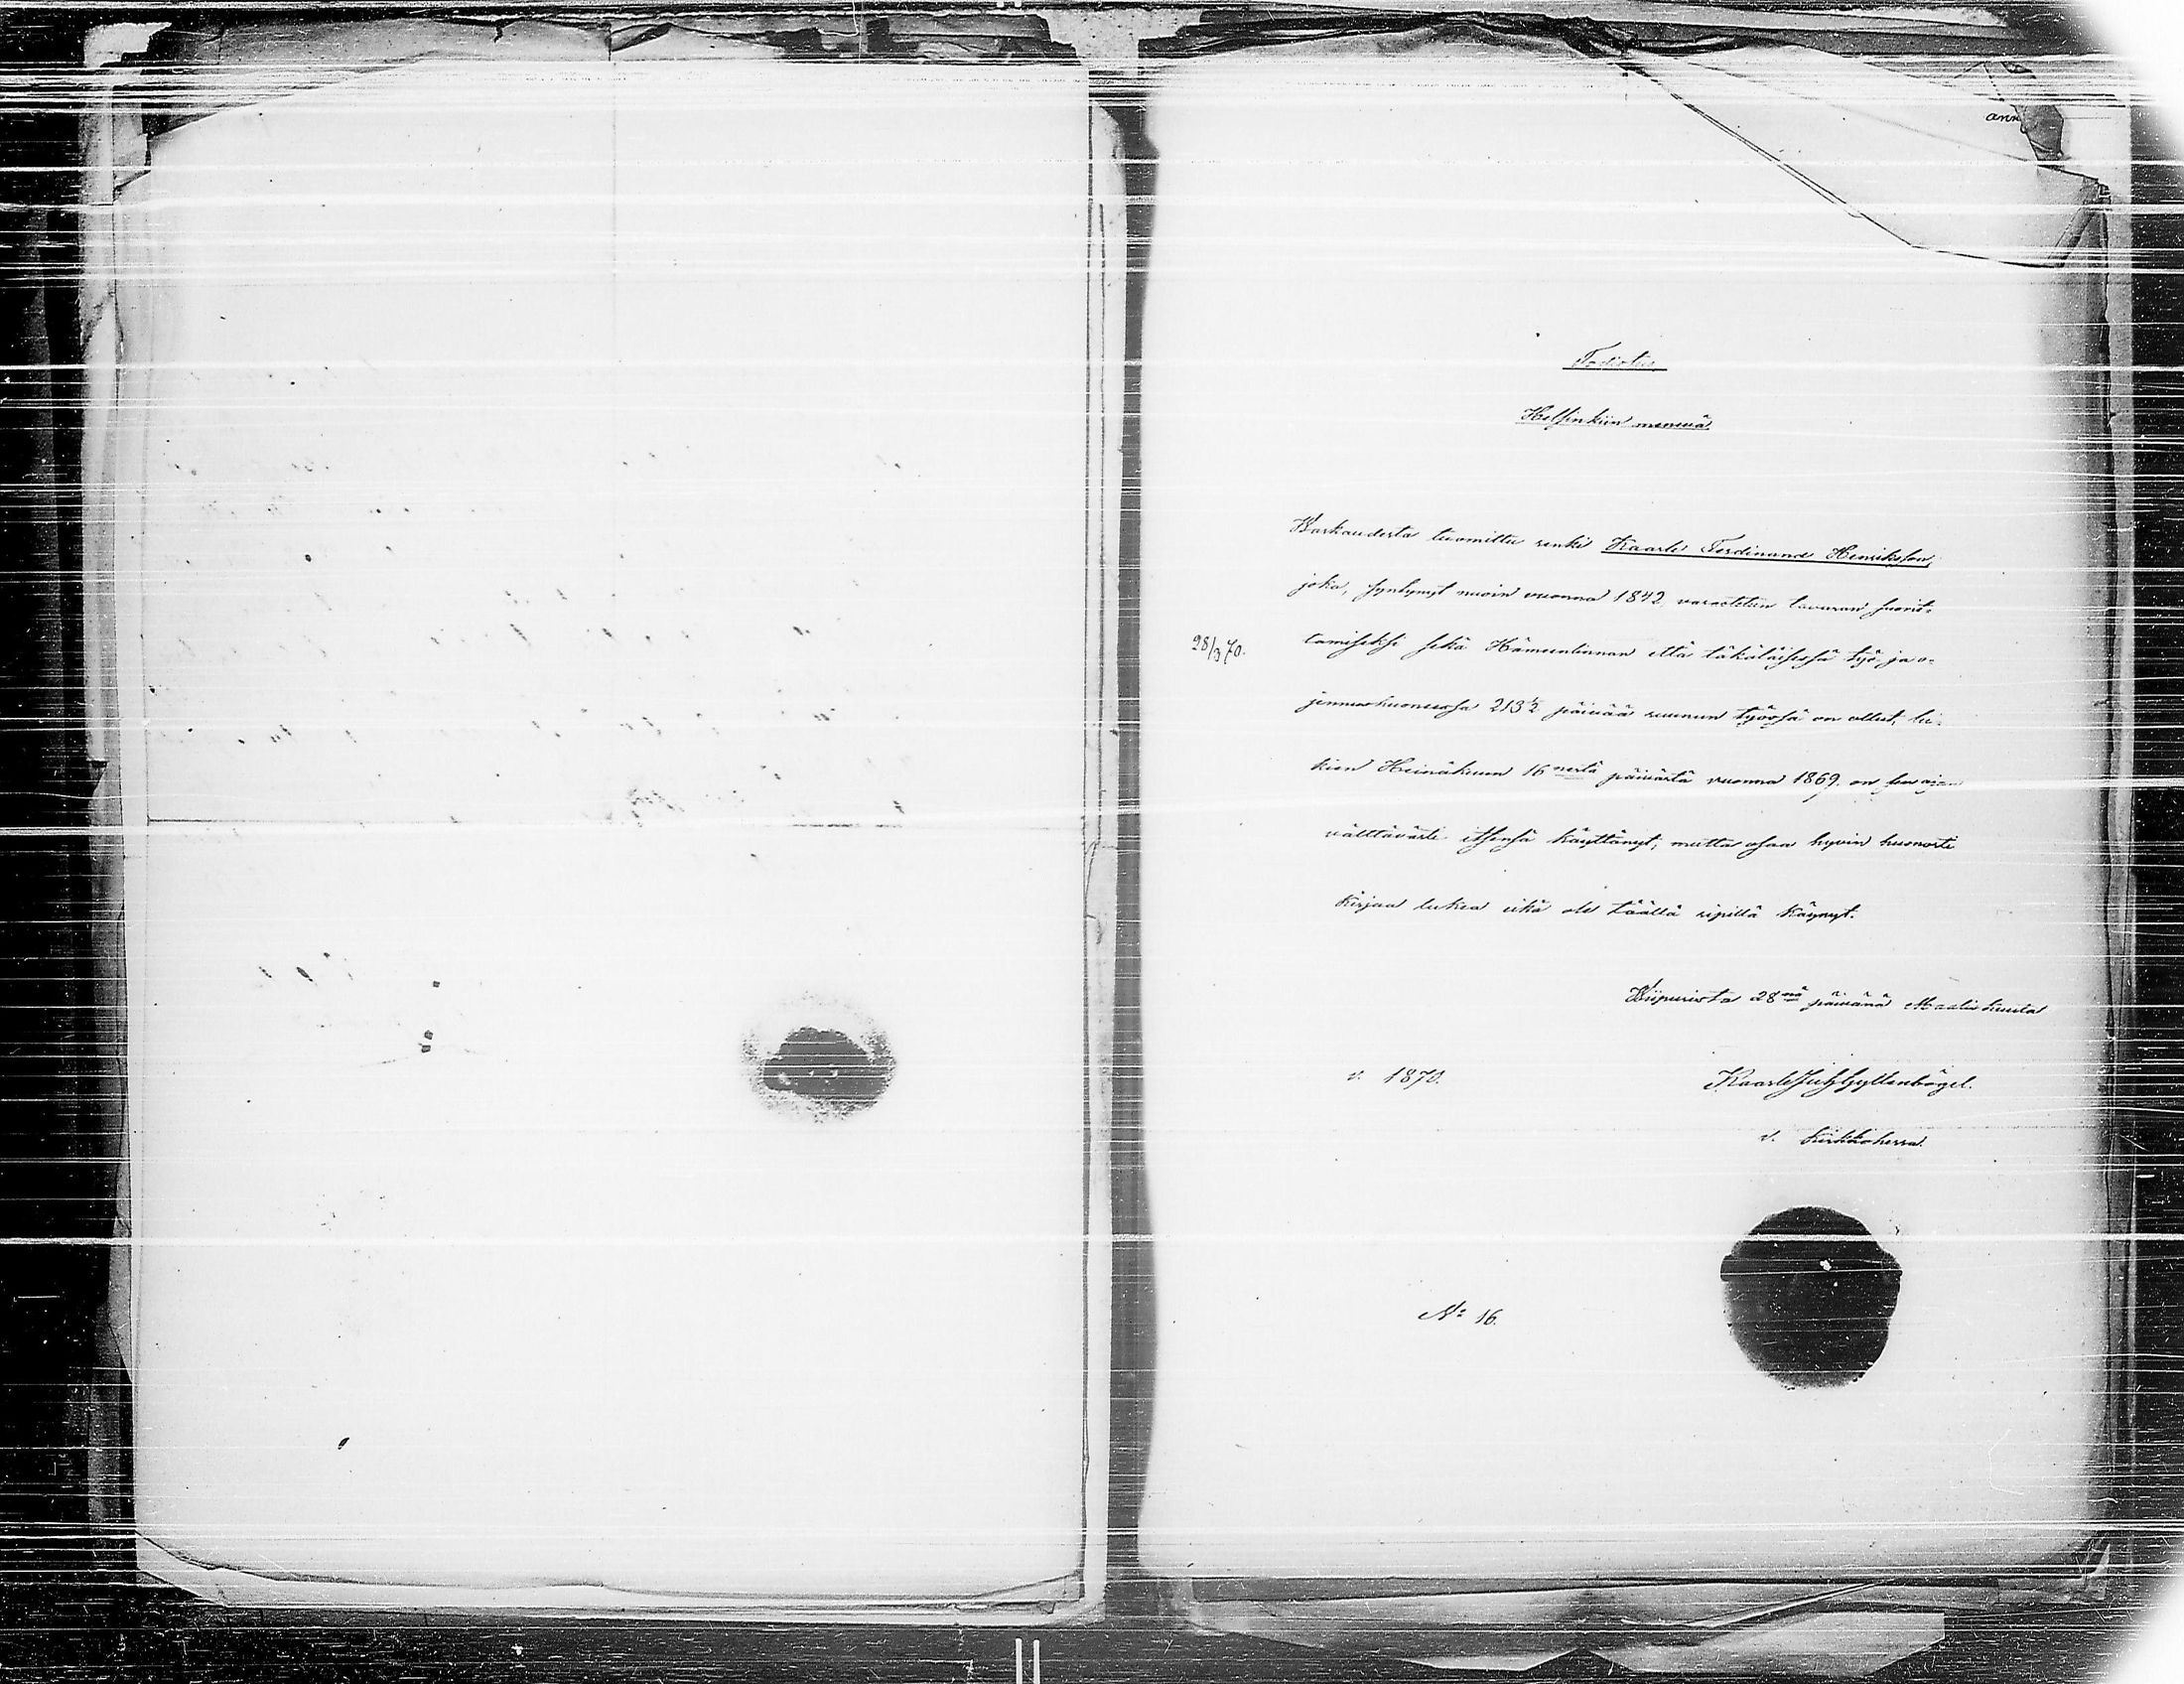 ann
Todistus
Helsinkiin menevä
Warkaudesta tuomittu renki Kaarle Ferdinand Henriksson,
joka, syntynyt nuoin vuonna 1842, varastetun tavaran suorit-
28/3 70.
tamiseksi sekä Hämeenlinnan että täkäläisessä työ- ja o-
jennushuoneessa 213 1/2 päivää ruunun työssä on ollut, lu-
kien Heinäkuun 16 nesta päivästä vuonna 1869. on sen ajan
välttävästi itsensä käyttänyt; mutta osaa hyvin huonosti
kirjaa lukea eikä ole täällä ripillä käynyt.
Wiipurista 28 nä päivänä Maaliskuuta
v. 1870.
Kaarle Juh Gyllenbögel.
v. kirkkoherra.
No 16.